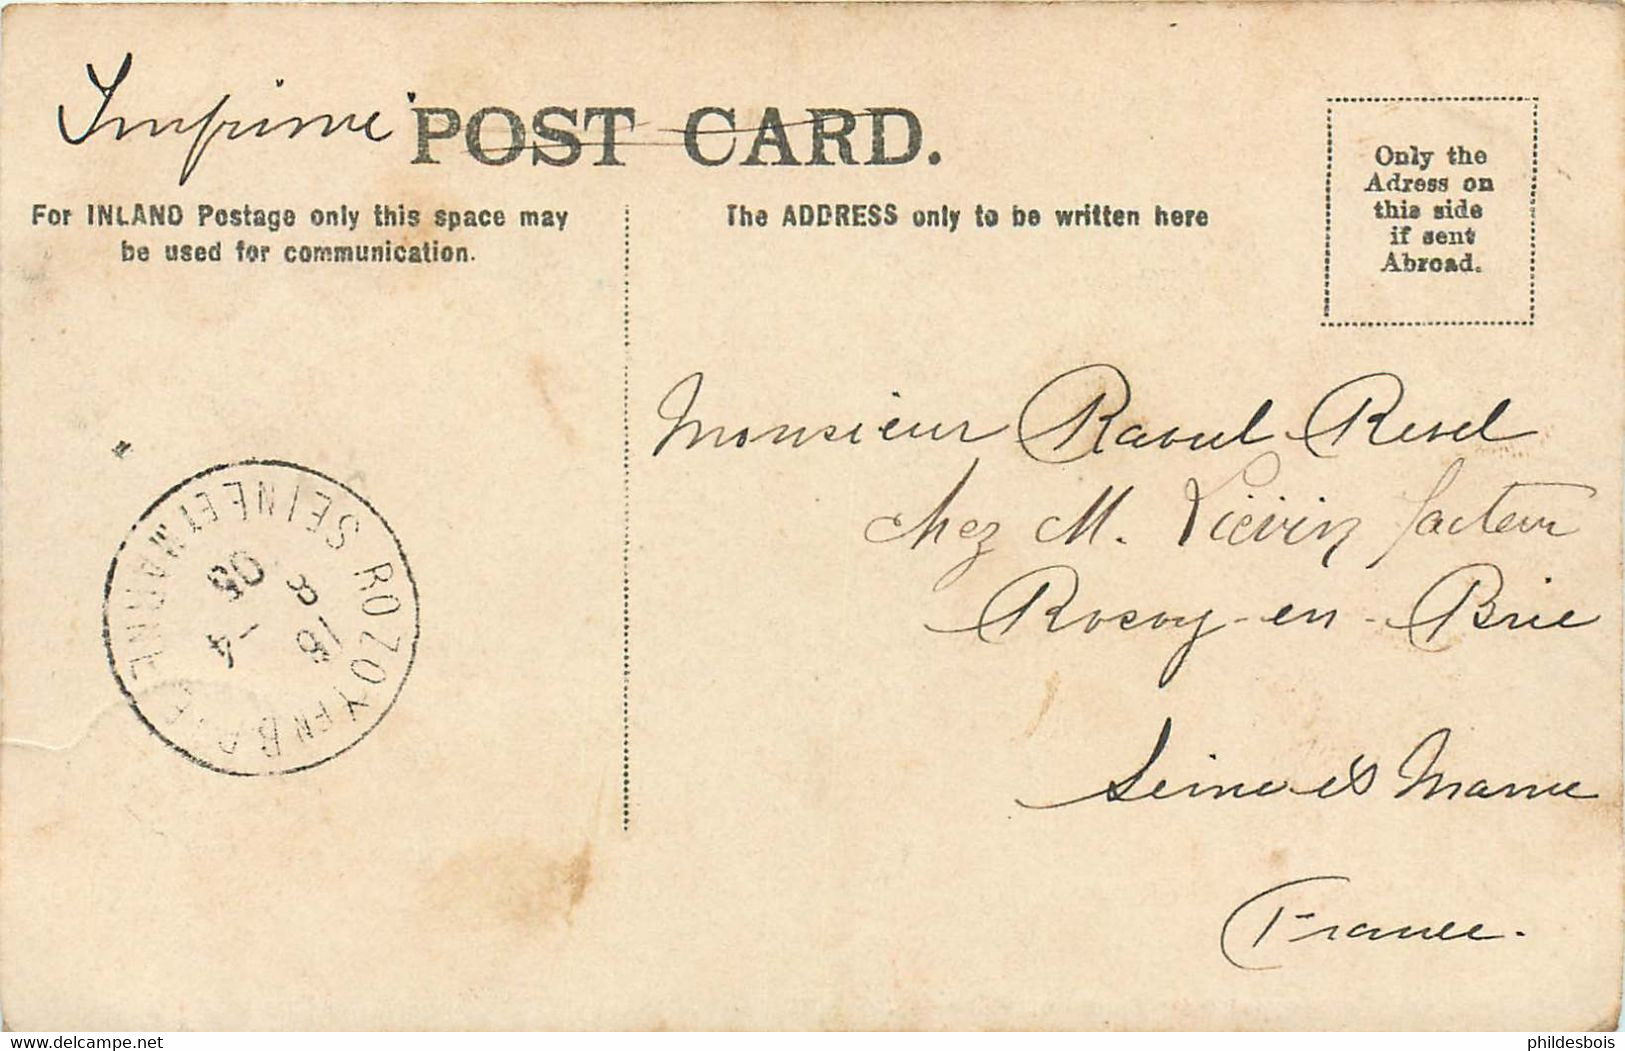 Imprimé
POST CARD.
For INLAND Postage only this space may
be used for communication.
The ADDRESS only to be written here
Only the
Adress on
this side
if sent
Abroad.
Monsieur Raoul Revel
chez M. Liévin facteur
Rosoy-en-Brie
Seine et Marne
France.
ROZOY EN BRIE
SEINE ET MARNE
8
18 -4
05
www.delcampe.net
phildesbois